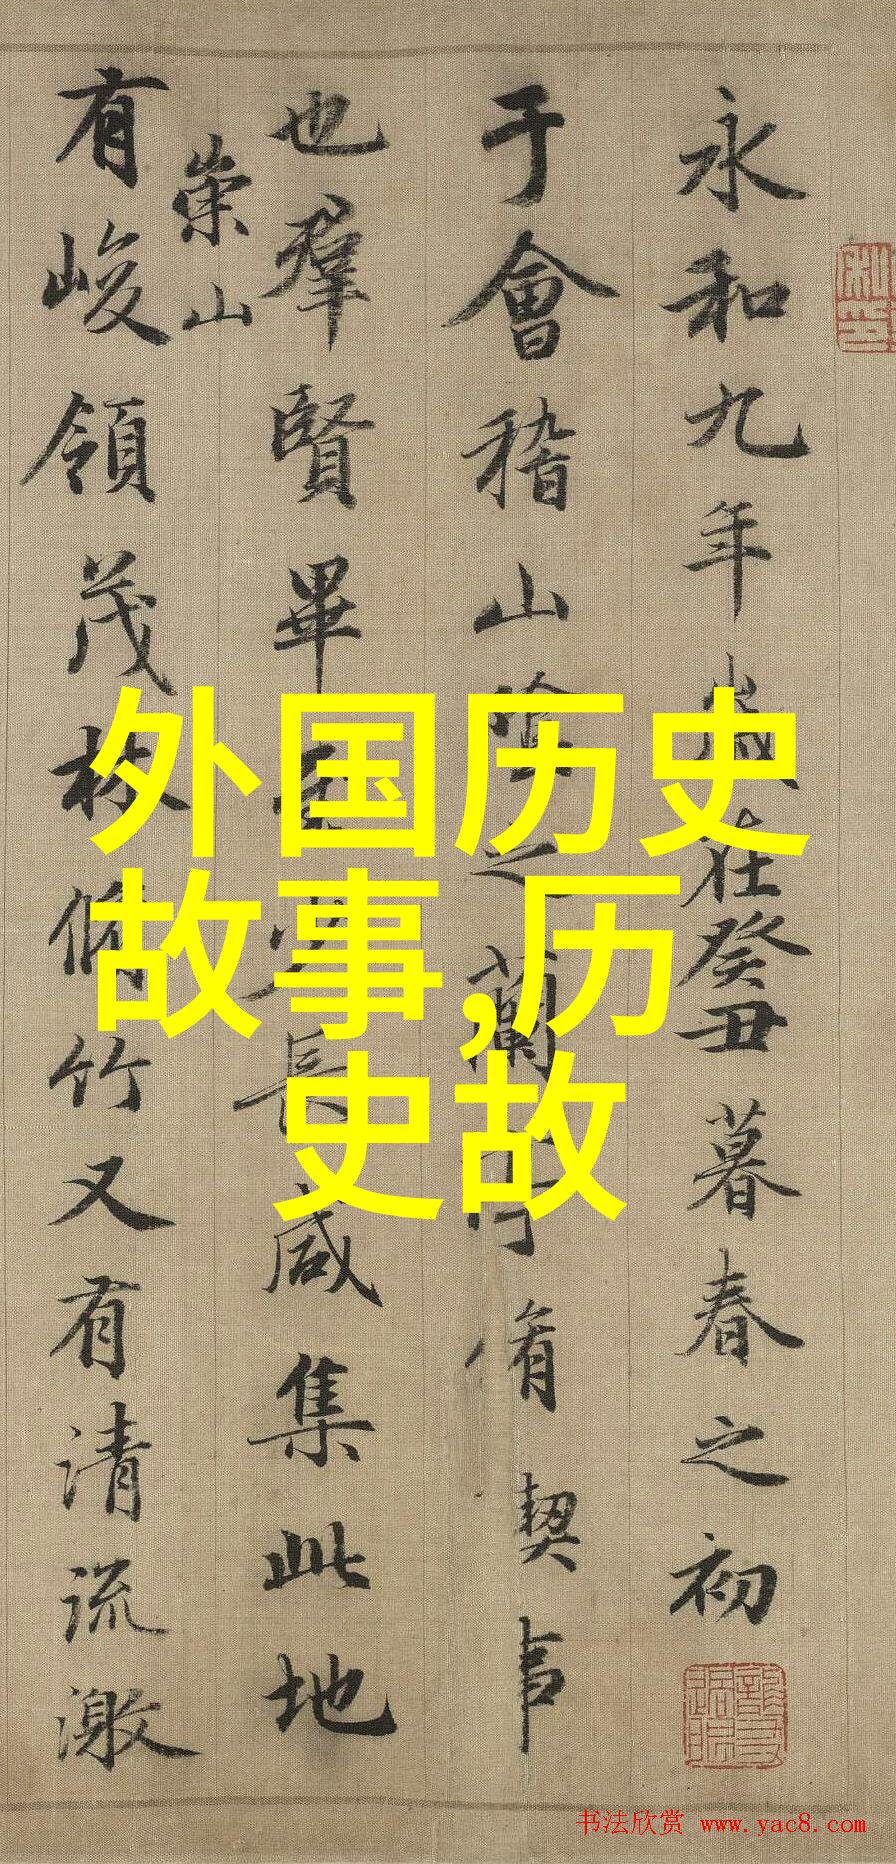 永和九年歲在癸丑暮春之初
于會稽山陰之蘭亭脩禊事
也羣賢畢至少長咸集此地
崇山
有峻領茂林脩竹又有清流激
外国历史
故事,历
史故
书法欣赏 www.yac8.com